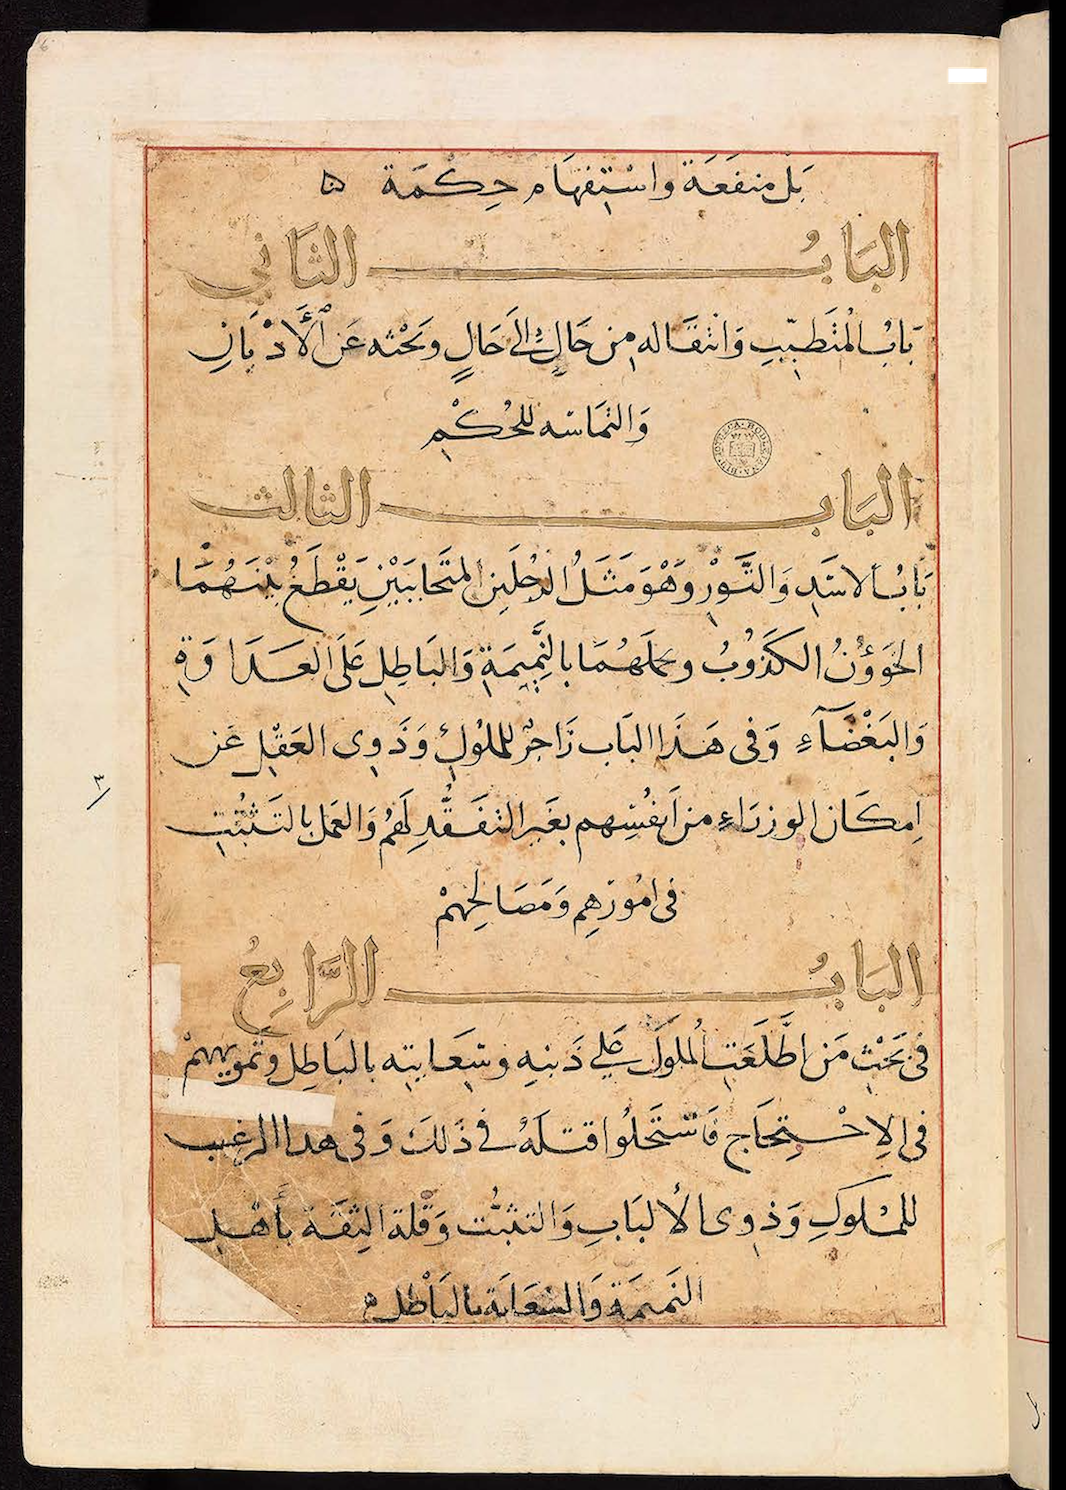 بَل منفَعَة واسْتِفهَام حِكْمَة ه
البَابُ الثَاني
بَابُ المُتَطَبِّبِ وَانتقَاله من حَالٍ إِلَى حَالٍ وبَحْثه عَن الْأَدْيَانِ
وَالتمَاسه للحُكْمِ
BIBLIOTHECA BODLEIANA
البَاب الثالث
بَابُ الاسَدِ وَالثَّوْرِ وَهْوَ مَثَلُ الرجُلَينِ المتَحَابَيْنِ يَقْطَعُ بيْنَهُمَا
الخَوَؤُنُ الكَذُوبُ ويحملهُمَا بالنَّمِيمَةِ وَالبَاطِلِ عَلَى العَدَاوَةِ
وَالبَغْضَآءِ وَفى هَذَا البَاب زَاجرٌ للملُوكِ وَذَوِى العَقْلِ عَن
اِمكَان الوزرَاءِ من اَنفُسِهم بغَير التفَقُّدِ لَهُمْ وَالعَمل بالتَثبُّتِ
فى امُورهِم وَمَصَالِحِهمْ
٣
البَابُ الرَّابِعُ
فى بَحْثِ مَن اطَّلَعَتِ المُلوكَ عَلى ذَنبِه وسِعَايتِه بالبَاطِل وتموِيههمْ
فى الِاحْتِجَاج فَاسْتَحَلُوا قتلَهُ فى ذَلكَ وَفى هذا الرغب
للمُلوَكِ وَذوِى الألبَابِ وَالتثبُّت وَقْلة الثِقَة بأهْلِ
النَمِيمَةِ وَالسَعَايَة بالبَاْطل ه